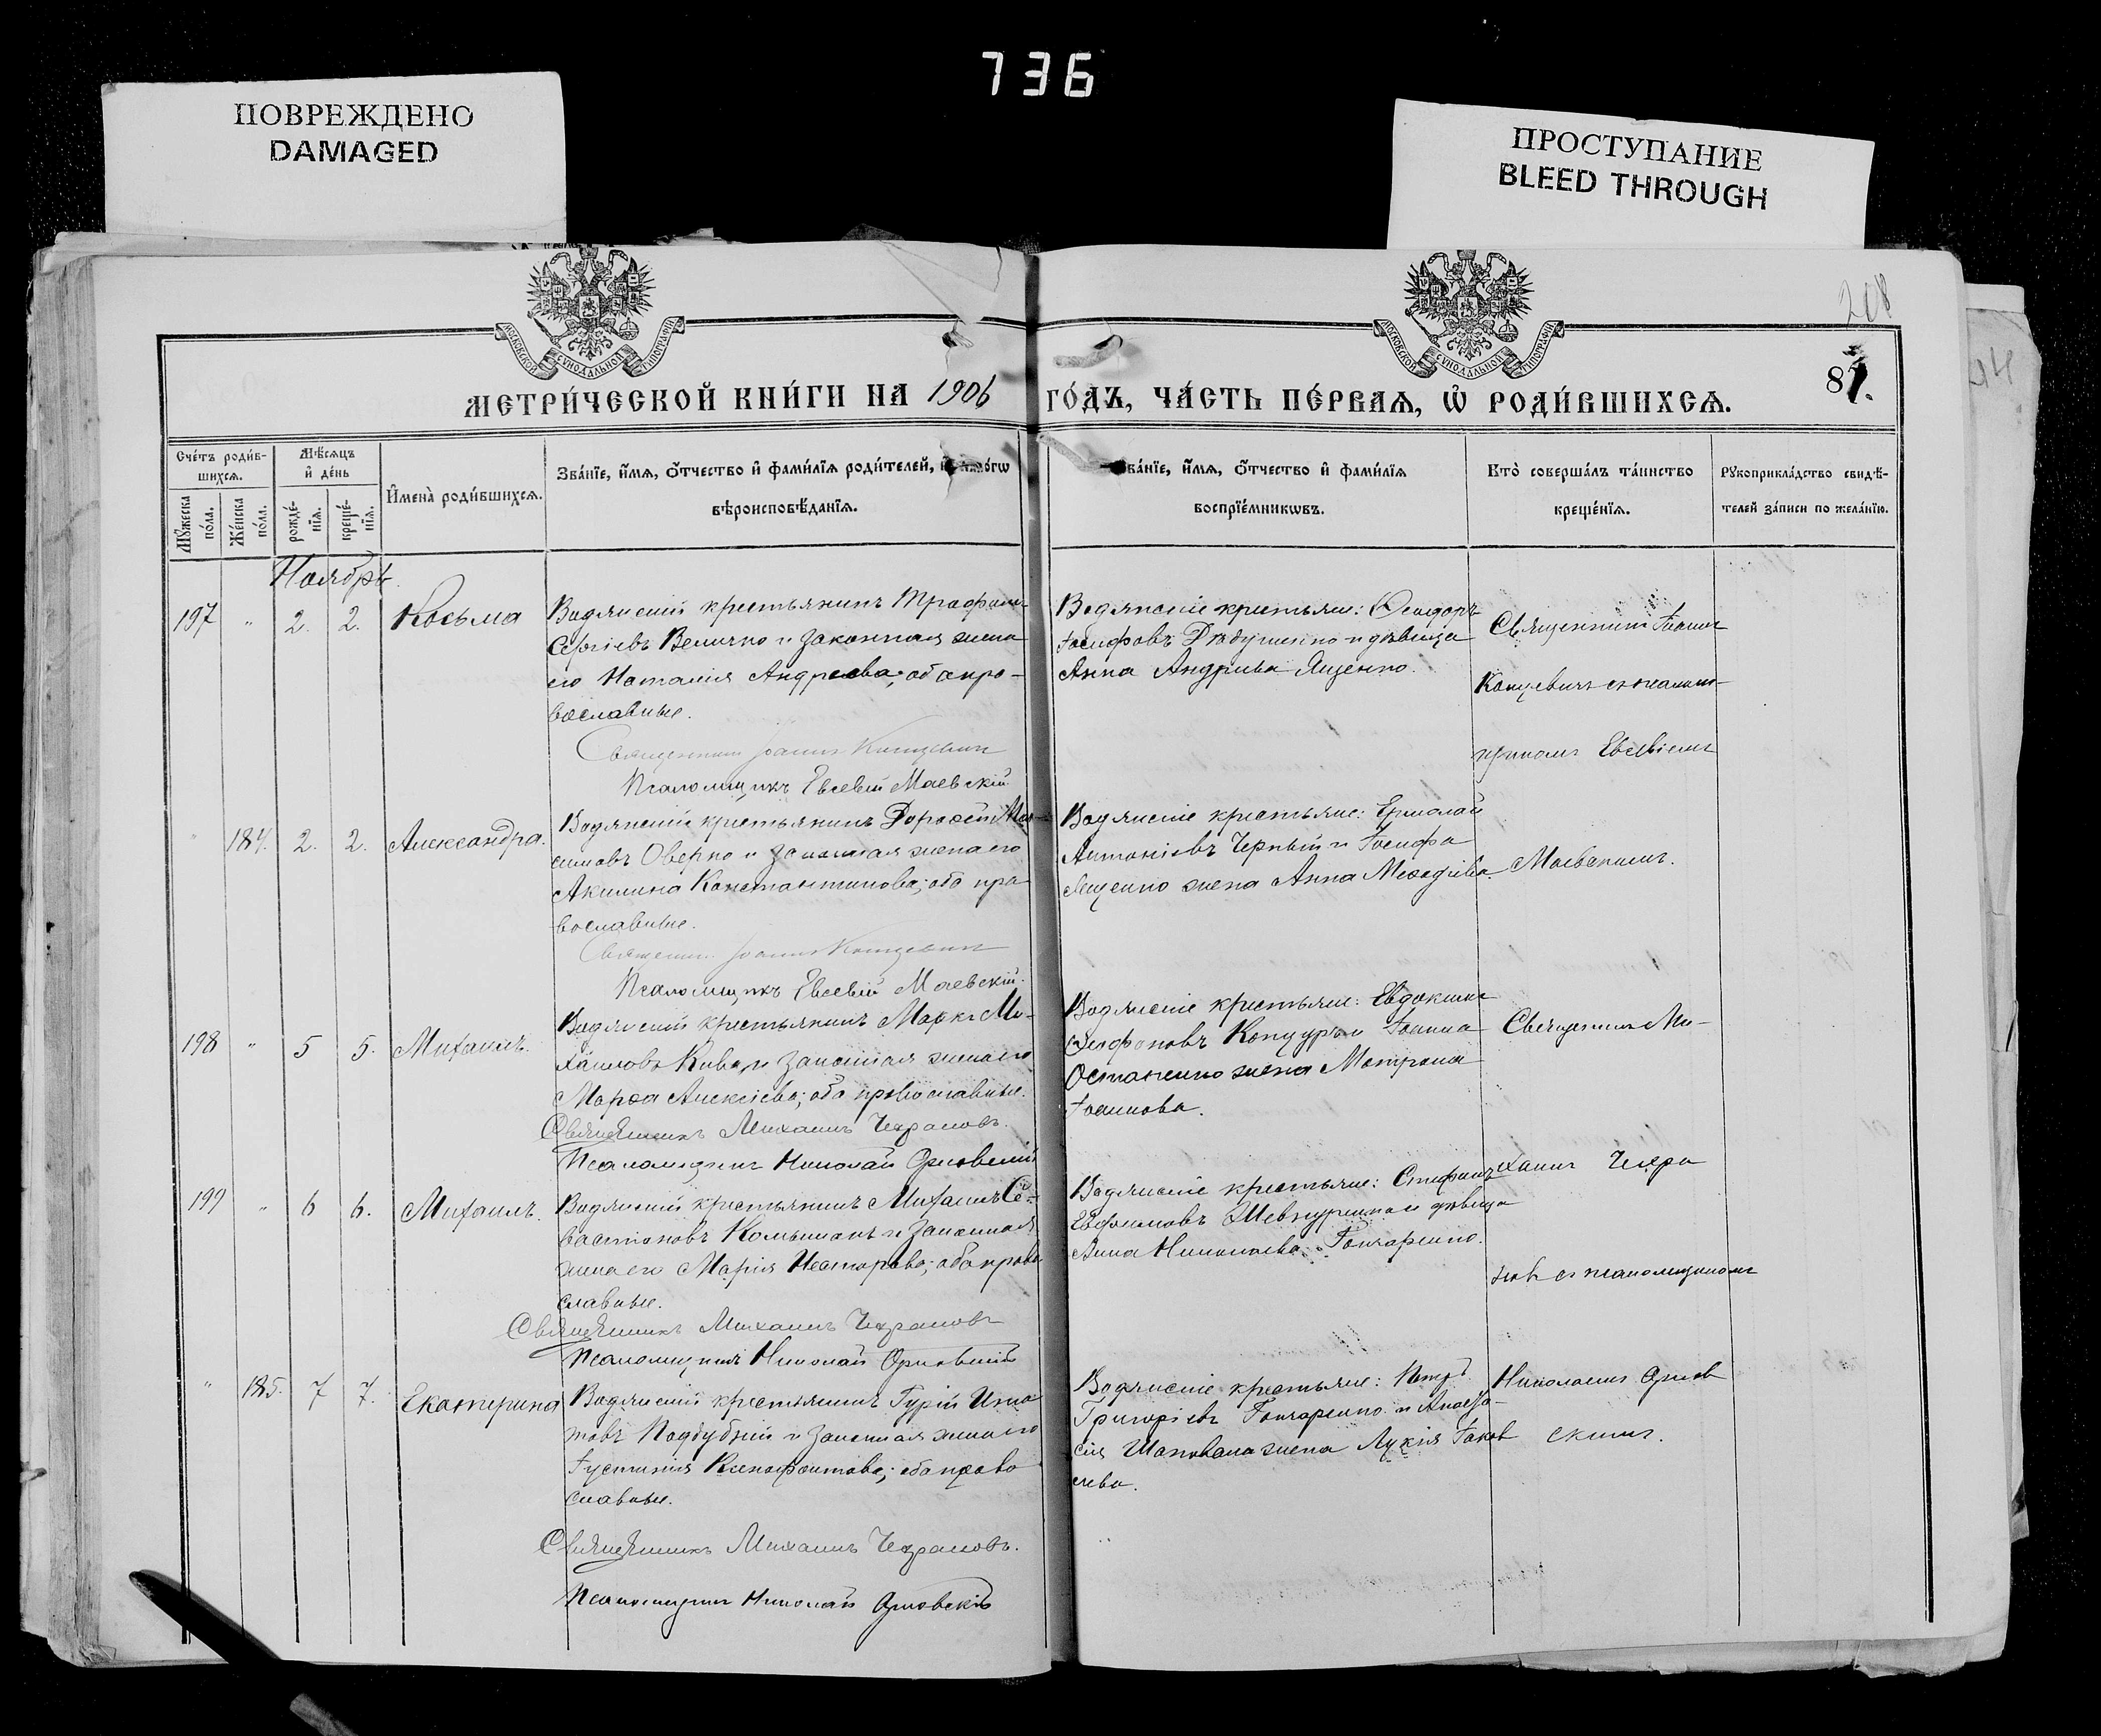 736
ПОВРЕЖДЕНО
DAMAGED
ПРОСТУПАНИЕ
BLEED THROUGH
МОСКОВСКОЙ СѴНОДАЛЬНОЙ ТИПОГРАФІИ
МОСКОВСКОЙ СѴНОДАЛЬНОЙ ТИПОГРАФІИ
208
МЕТРИ́ЧЕСКОЙ КНИ́ГИ НА 1906
ГО́ДЪ, ЧА́СТЬ ПЕ́РВАѦ, Ѡ҆ РОДИ́ВШИХСѦ.
87.
Сче́тъ роди́в-
шихсѧ.
Мѣ́сѧцъ
и҆ де́нь
Мꙋ́жеска по́ла.
Же́нска по́ла.
рожде́-нїѧ.
креще́-нїѧ.
И҆мена̀ роди́вшихсѧ.
Зва́нїе, и҆́мѧ, ѻ҆́тчество и҆ фами́лїѧ роди́телей, и҆
вѣроисповѣ́данїѧ.
Зва́нїе, и҆́мѧ, ѻ҆́тчество и҆ фами́лїѧ
воспрїе́мникѡвъ.
Кто̀ соверша́лъ та́инство
креще́нїѧ.
Рꙋкоприкла́дство свидѣ́-
телей за́писи по жела́нїю.
Ноябрь.
197 " 2. 2. Косьма
Водянскій крестьянинъ Трофим
Сергіевъ Величко и законная жена
его Наталія Андреева; оба пра-
вославные.
Священникъ Іоаннъ Концевич
Псаломщикъ Евсевій Маевскій
Водянскіе крестьяне: Исидоръ
Іосифовъ Дядушенко и дѣвица
Анна Андреева Ященко.
Священник Іоанн
Концевичъ съ псалом-
щиком Евсевіем
" 184. 2. 2. Александра.
Водянскій крестьянинъ Дорофей Мак-
симовъ Оверко и законная жена его
Акилина Константинова; оба пра-
вославные.
Священник Іоанн Концевич
Псаломщикъ Евсевій Маевскій.
Водянскіе крестьяне: Ермолай
Антоніевъ Черный и Іосифа
Ященко жена Анна Мефодіева.
Маевскимъ.
198 " 5 5. Михаилъ.
Водянскій крестьянинъ Маркъ Ми-
хаиловъ Кива и законная жена его
Марфа Алексіева; оба православные.
Священникъ Михаилъ Чехрановъ.
Псаломщикъ Николай Орловскій
Водянскіе крестьяне: Евдокимъ
Коцуръ и Іоанна
Остапенко жена Матрона
Іоаннова.
Священникъ Ми-
хаилъ Чехра
новъ съ псаломщикомъ
199 " 6 6. Михаилъ.
Водянскій крестьянинъ Михаилъ Се-
вастіановъ Колыханъ и законная
жена его Марія Несторова; оба право
славные.
Священникъ Михаилъ Чехрановъ
Псаломщикъ Николай Орловскій
Водянскіе крестьяне: Стефанъ
Евфимовъ и дѣвица
Анна Николаева Гончаренко.
" 185. 7 7. Екатерина
Водянскій крестьянинъ Гурій Ипа
товъ Поддубный и законная жена его
Іустинія Ксенофонтова; оба право
славные.
Священникъ Михаилъ Чехрановъ.
Псаломщикъ Николай Орловскій
Водянскіе крестьяне: Петръ
Григоріевъ Гончаренко и Анаста-
сія Шаповала жена Лукія Іаков
лева.
Николаемъ Орлов
скимъ.